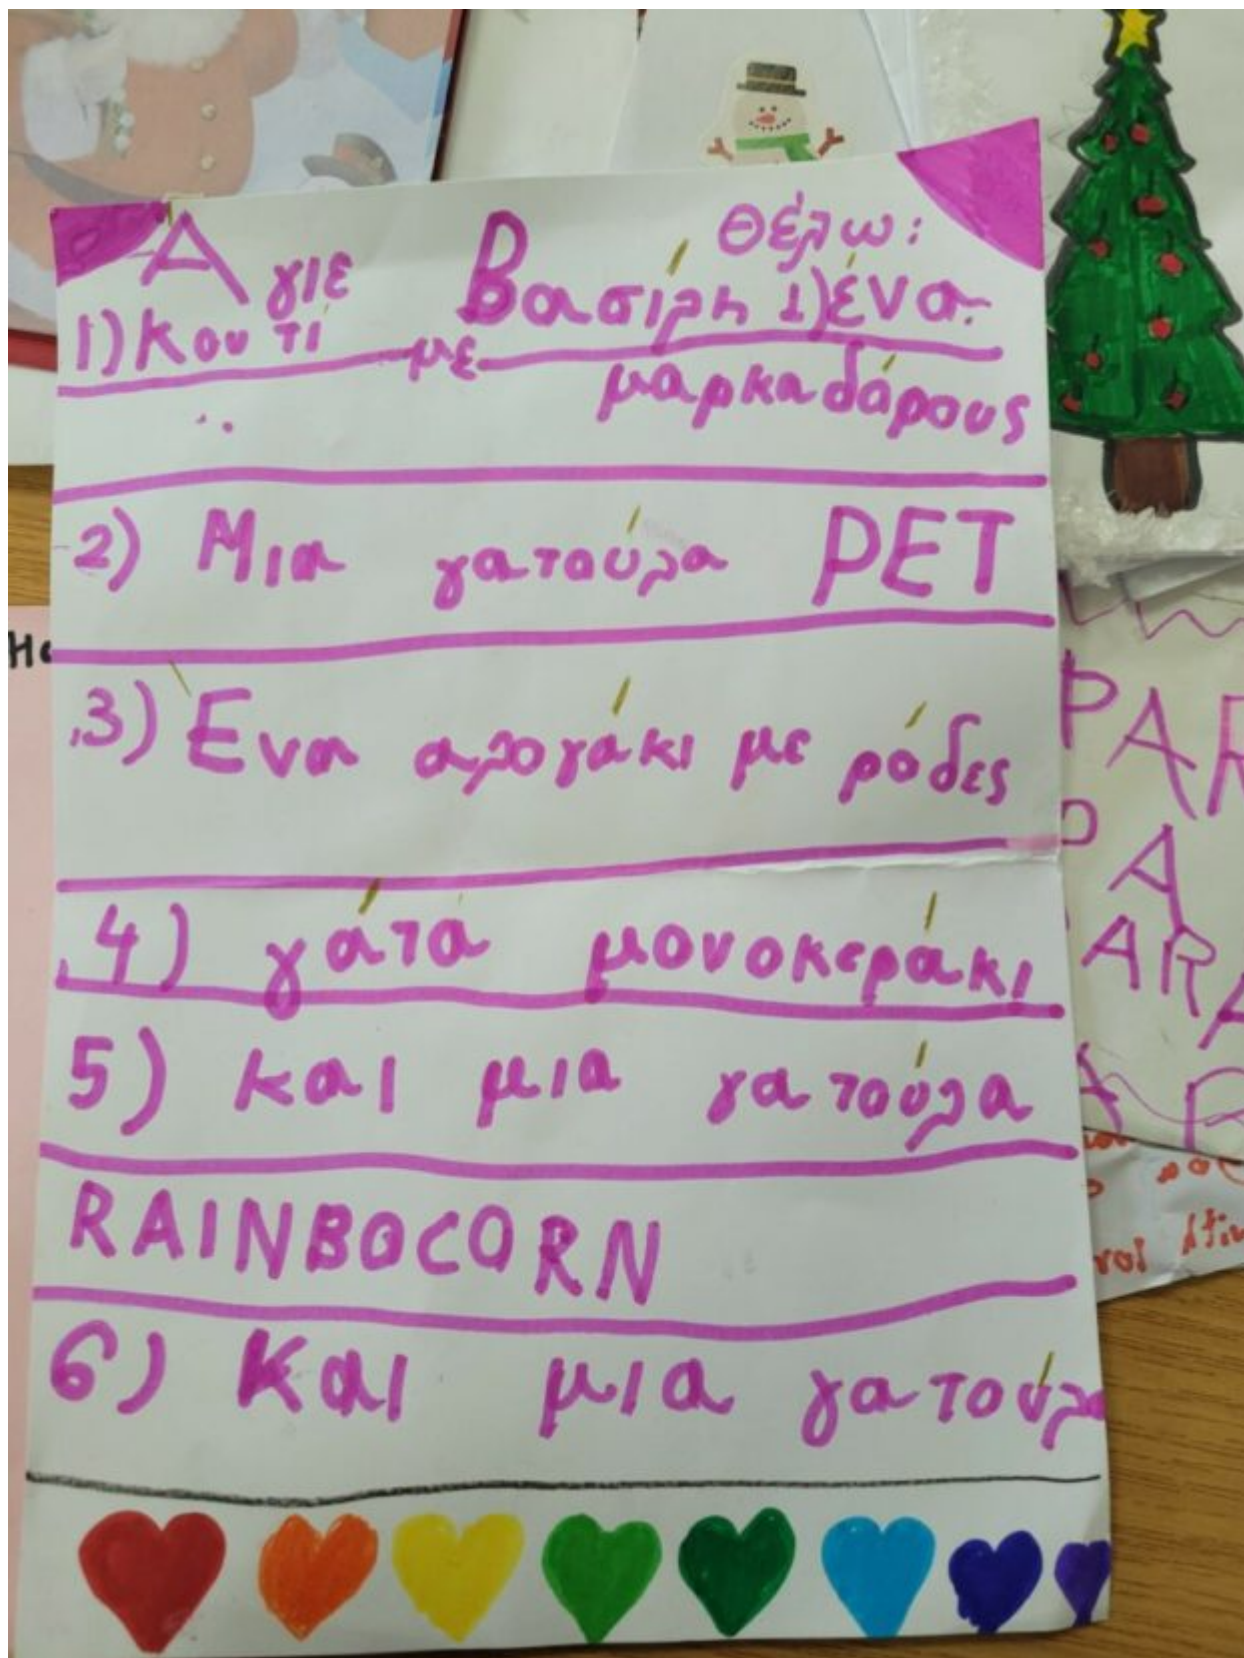 Θέλω:
Άγιε Βασίλη 1) ένα
1) κουτί με μαρκαδόρους
2) Μια γατούλα PET
3) Ένα αλογάκι με ρόδες
4) γάτά μονοκεράκι
5) και μια γατούλα
RAINBOCORN
6) Και μια γατούλα
PAR
PA
ARA